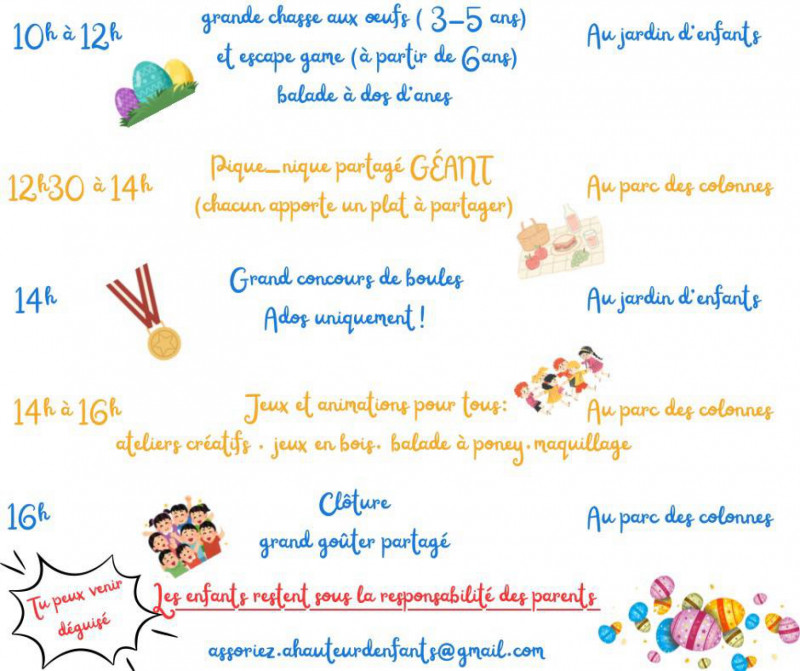 10h à 12h
grande chasse aux œufs ( 3-5 ans)
et escape game (à partir de 6ans)
balade à dos d'anes
Au jardin d'enfants
12h30 à 14h
Pique-nique partagé GÉANT
(chacun apporte un plat à partager)
Au parc des colonnes
14h
Grand concours de boules
Ados uniquement !
Au jardin d'enfants
14h à 16h
Jeux et animations pour tous:
Au parc des colonnes
ateliers créatifs . jeux en bois. balade à poney.maquillage
16h
Clôture
grand goûter partagé
Au parc des colonnes
Tu peux venir
déguisé
Les enfants restent sous la responsabilité des parents
assoriez.ahauteurdenfants@gmail.com